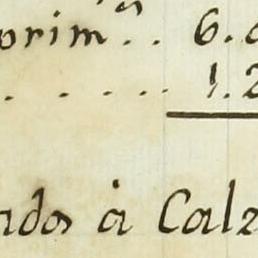 orim.. 6.
..... 1.2
ados à Calz